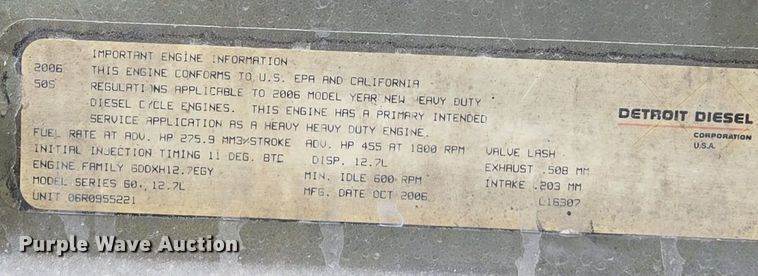 IMPORTANT ENGINE INFORMATION
2006 THIS ENGINE CONFORMS TO U.S. EPA AND CALIFORNIA
50S REGULATIONS APPLICABLE TO 2006 MODEL YEAR NEW HEAVY DUTY
DIESEL CYCLE ENGINES. THIS ENGINE HAS A PRIMARY INTENDED
SERVICE APPLICATION AS A HEAVY HEAVY DUTY ENGINE.
FUEL RATE AT ADV. HP 275.9 MM3/STROKE ADV. HP 455 AT 1800 RPM VALVE LASH
INITIAL INJECTION TIMING 11 DEG. BTC DISP. 12.7L EXHAUST .508 MM
ENGINE FAMILY 6DDXH12.7EGY MIN. IDLE 600 RPM INTAKE .203 MM
MODEL SERIES 60, 12.7L MFG. DATE OCT 2006 L16307
UNIT 06R0955221
DETROIT DIESEL
CORPORATION
U.S.A.
Purple Wave Auction